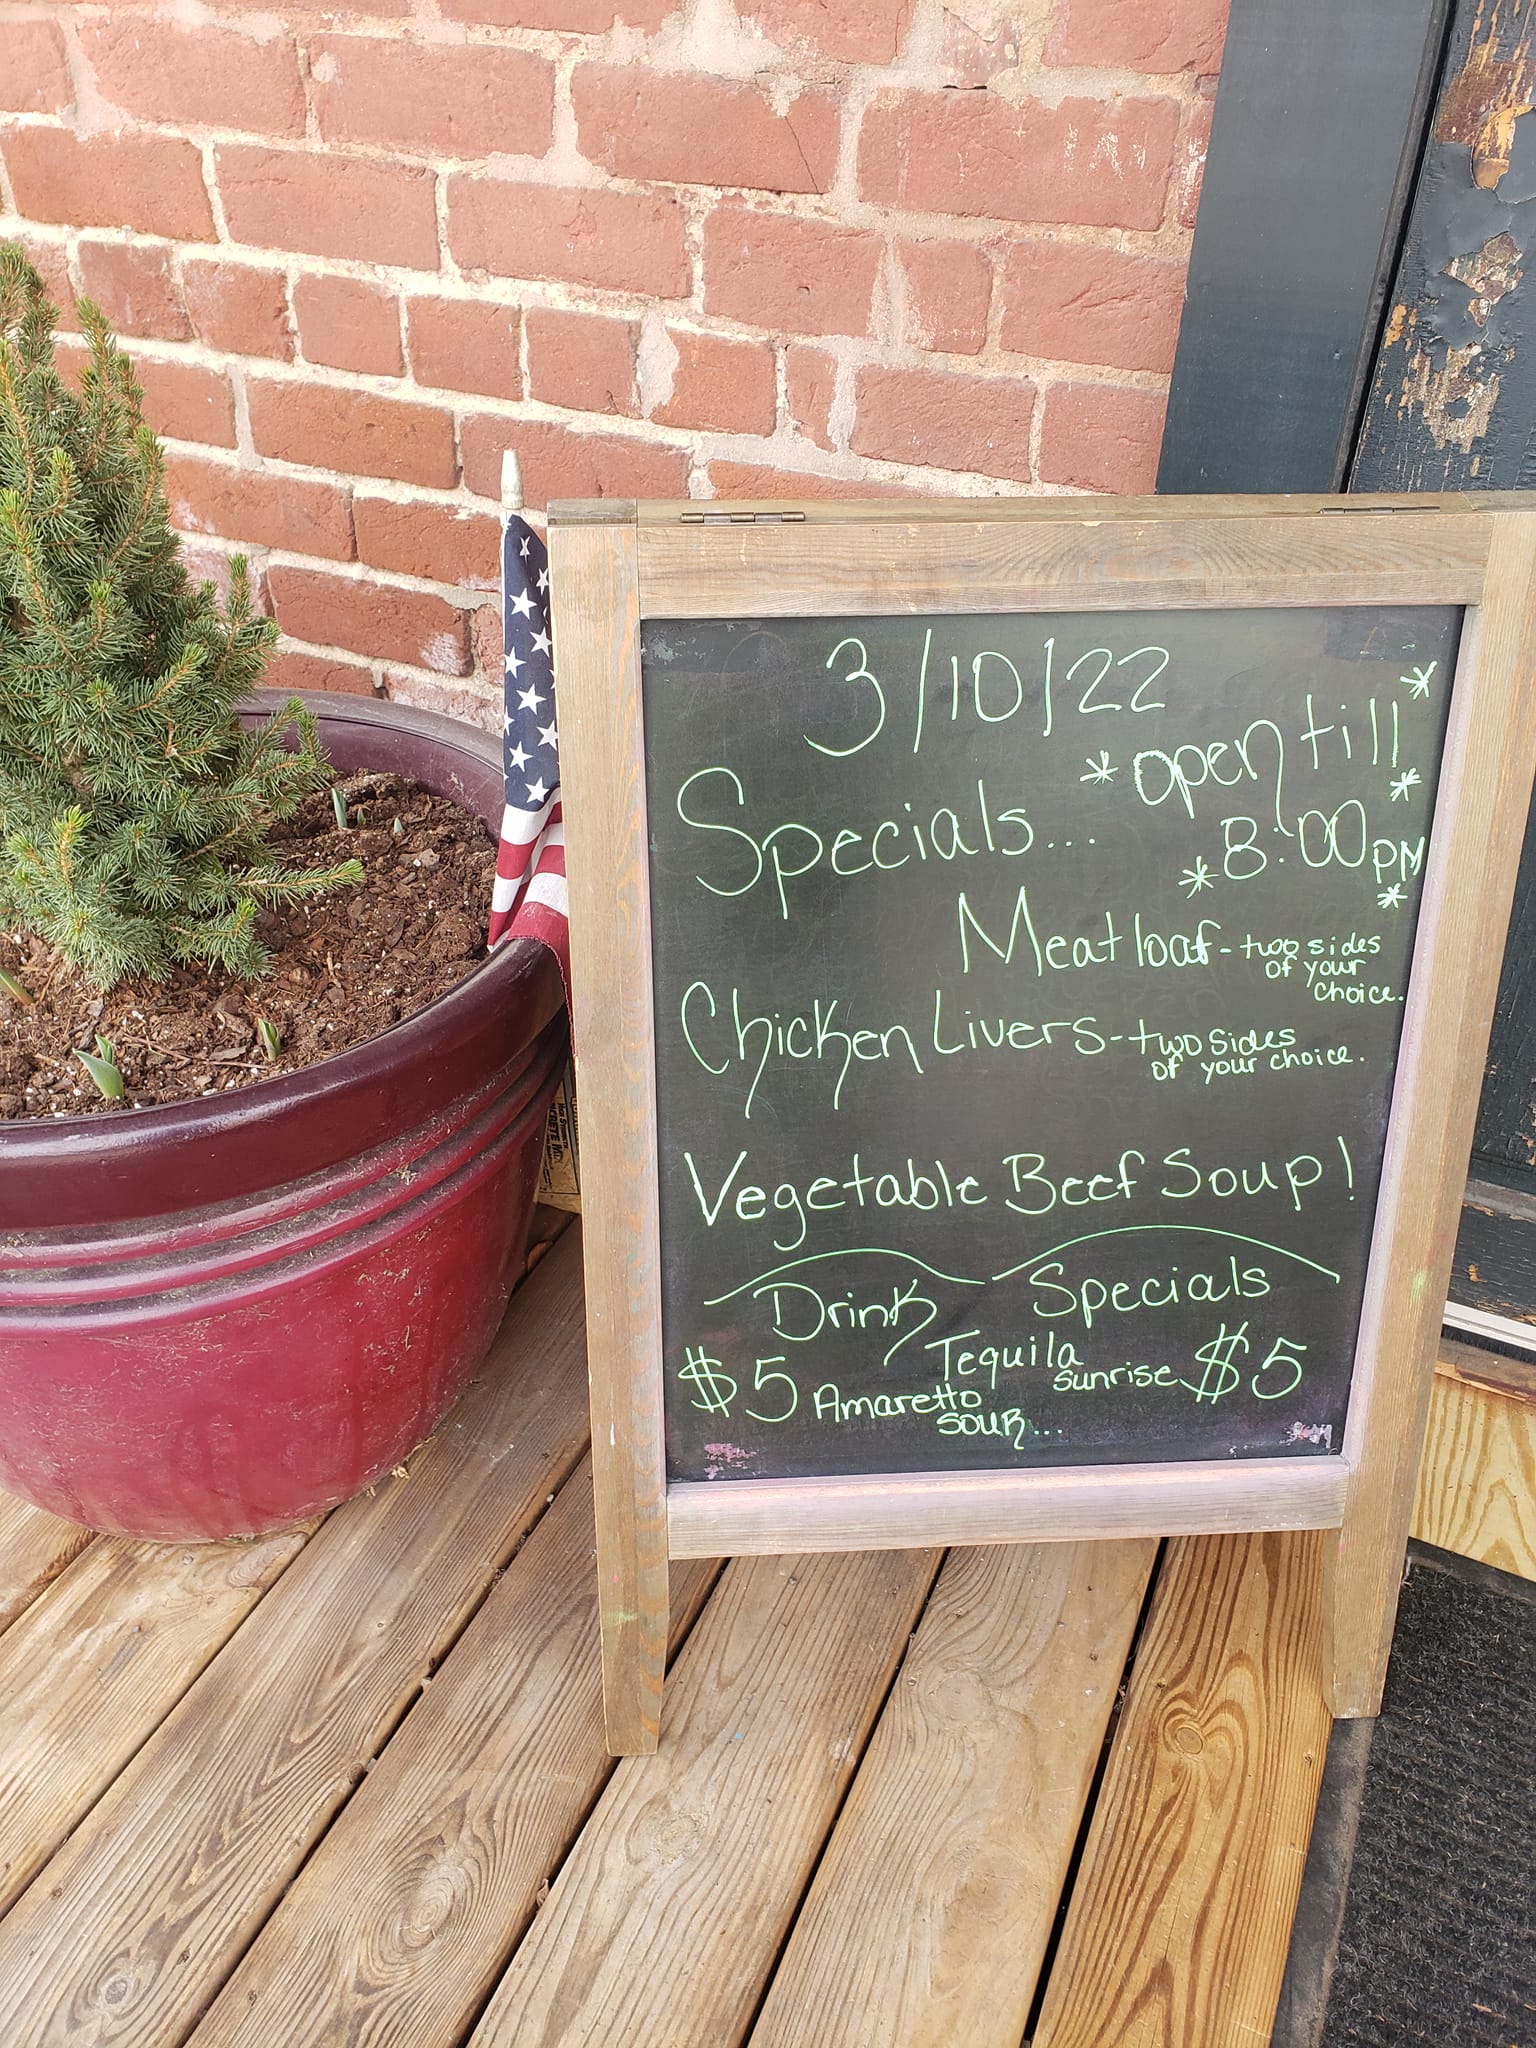 3/10/22
*open till*
Specials...
*8:00pm*
*
Meatloaf - two sides
of your
choice.
Chicken Livers - two sides
of your choice.
Vegetable Beef Soup!
Drink Specials
$5 Amaretto
sour...
Tequila
Sunrise $5
CRETE MI